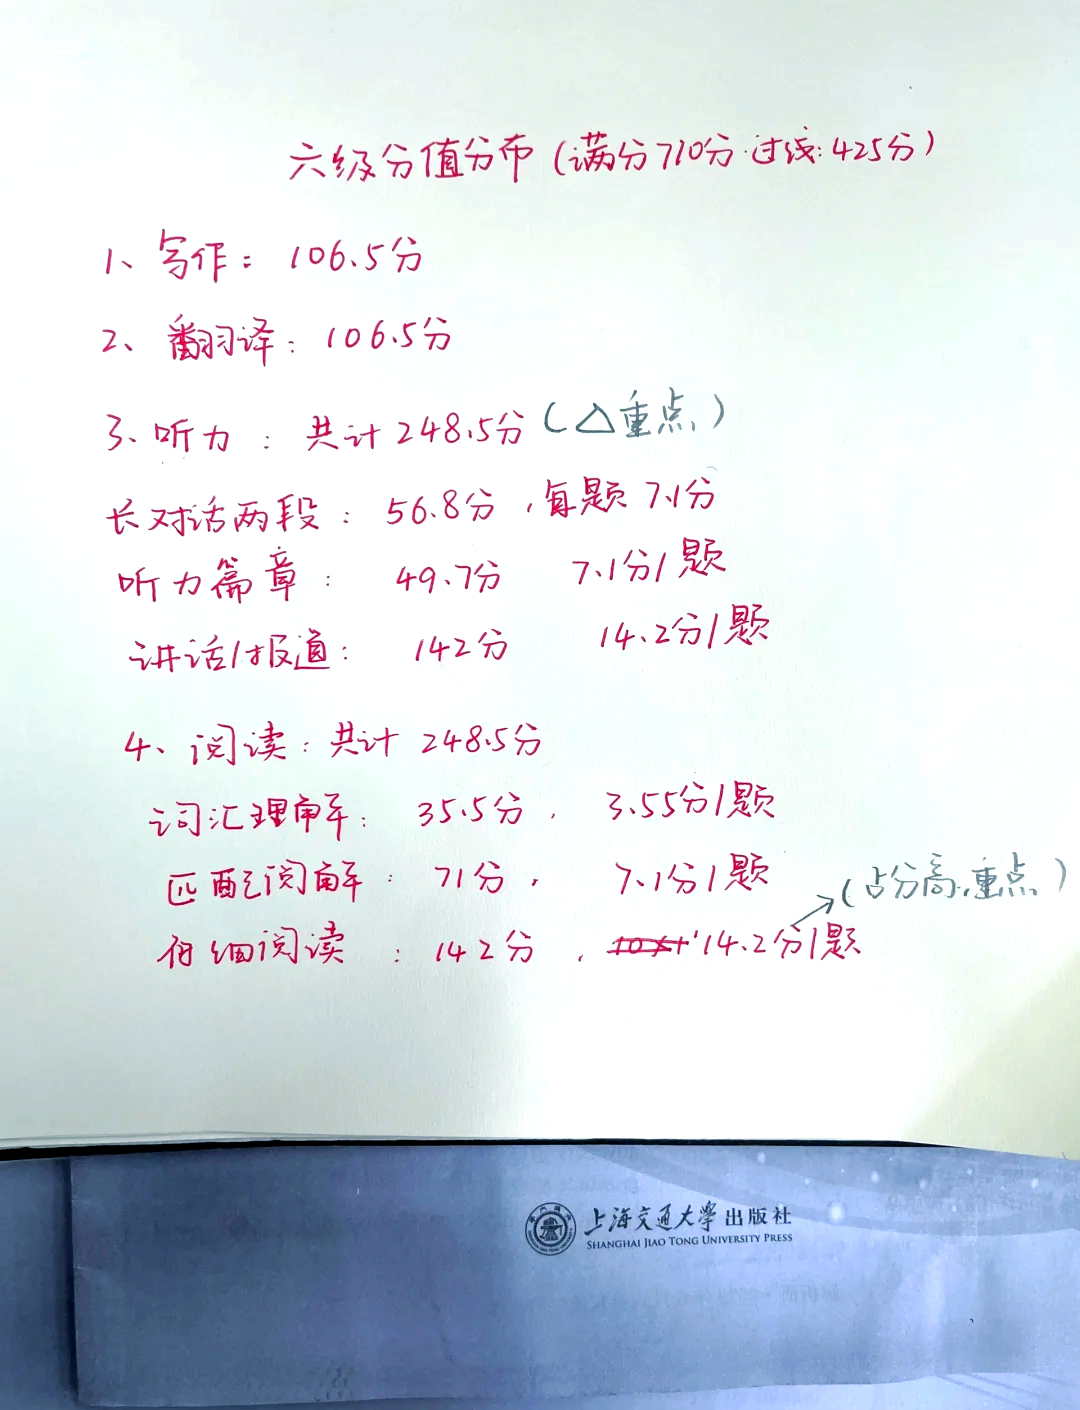 六级分值分布(满分710分·过线:425分)
1、写作: 106.5分
2、翻译: 106.5分
3、听力: 共计248.5分(△重点)
长对话两段: 56.8分,每题7.1分
听力篇章: 49.7分 7.1分/题
讲话/报道: 142分 14.2分/题
4、阅读: 共计 248.5分
词汇理解: 35.5分, 3.55分/题
匹配阅解: 71分, 7.1分/题
(占分高,重点)
仔细阅读: 142分, 14.2分/题
上海交通大学出版社
SHANGHAI JIAO TONG UNIVERSITY PRESS